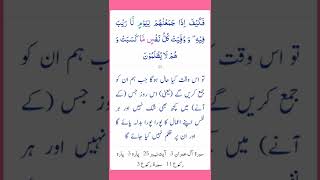 فَكَيْفَ اِذَا جَمَعْنٰهُمْ لِيَوْمٍ لَّا رَيْبَ
فِيْهِ ۫ وَ وُفِّيَتْ كُلُّ نَفْسٍ مَّا كَسَبَتْ وَ
هُمْ لَا يُظْلَمُوْنَ
تو اس وقت کیا حال ہوگا جب ہم ان کو
جمع کریں گے (یعنی) اس روز جس (کے
آنے) میں کچھ بھی شک نہیں اور ہر
نفس اپنے اعمال کا پورا پورا بدلہ پائے گا
اور ان پر ظلم نہیں کیا جائے گا
سورۃ آل عمران 3 آیت نمبر 25 پارہ 3 پارہ
رکوع 11 سورۃ رکوع 3